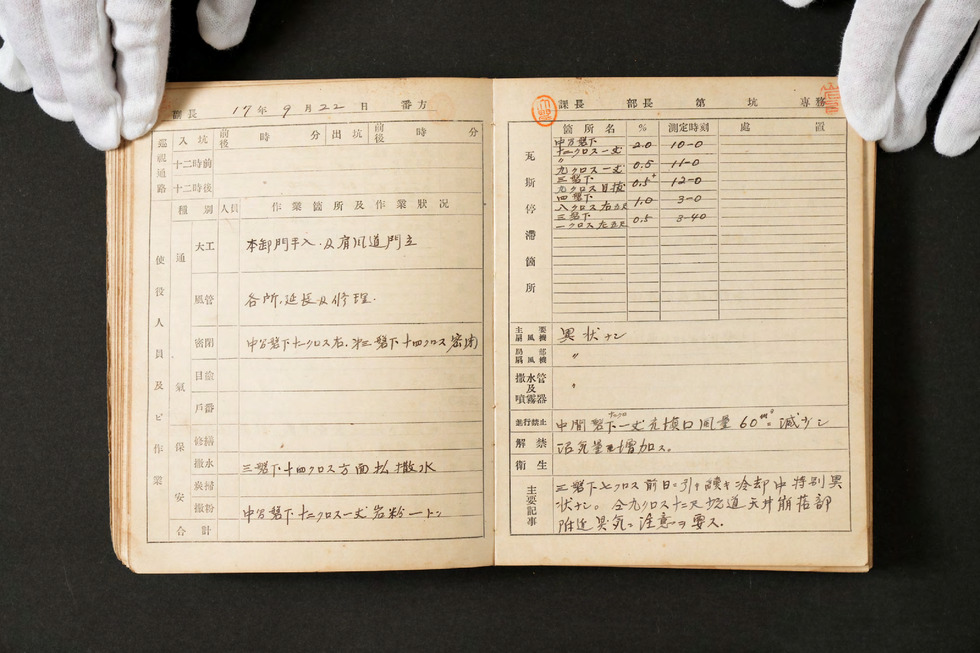 副長 17年 9月 22日 番方
巡視通路 入坑 前後 時 分 出坑 前後 時 分
十二時前
十二時後
使役人員及ビ作業
種別 人員 作業箇所及作業状況
通気
大工 本卸門手入.及肩風道門立
風管 各所.延長及修理.
密閉 中方盤下十二クロス右.第三盤下十四クロス密閉
目塗
戸番
保安
修繕
撒水 三盤下十四クロス方面払撒水
炭掃
撒粉 中方盤下十二クロス一丈岩粉一トン
合計
課長 部長 第 坑 専務
瓦斯停滞箇所
箇所名 % 測定時刻 処置
中方盤下
十二クロス一丈 2.0 10-0
〃
九クロス一丈 0.5 11-0
三盤下
九クロス目抜 0.5+ 12-0
四盤下
八クロス右五尺 1.0 3-0
三盤下
一クロス左五尺 0.5 3-40
主要扇風機 異状ナシ
局部扇風機 〃
撒水管及噴霧器 〃
進行禁止 中間盤下一丈 風量60 減少シ
解禁 増加ス。
衛生
主要記事
三盤下七クロス前日ニ引キ続キ冷却中特別異
状ナシ。仝九クロス十二尺坑道天井崩落部
附近異気ニ注意ヲ要ス.